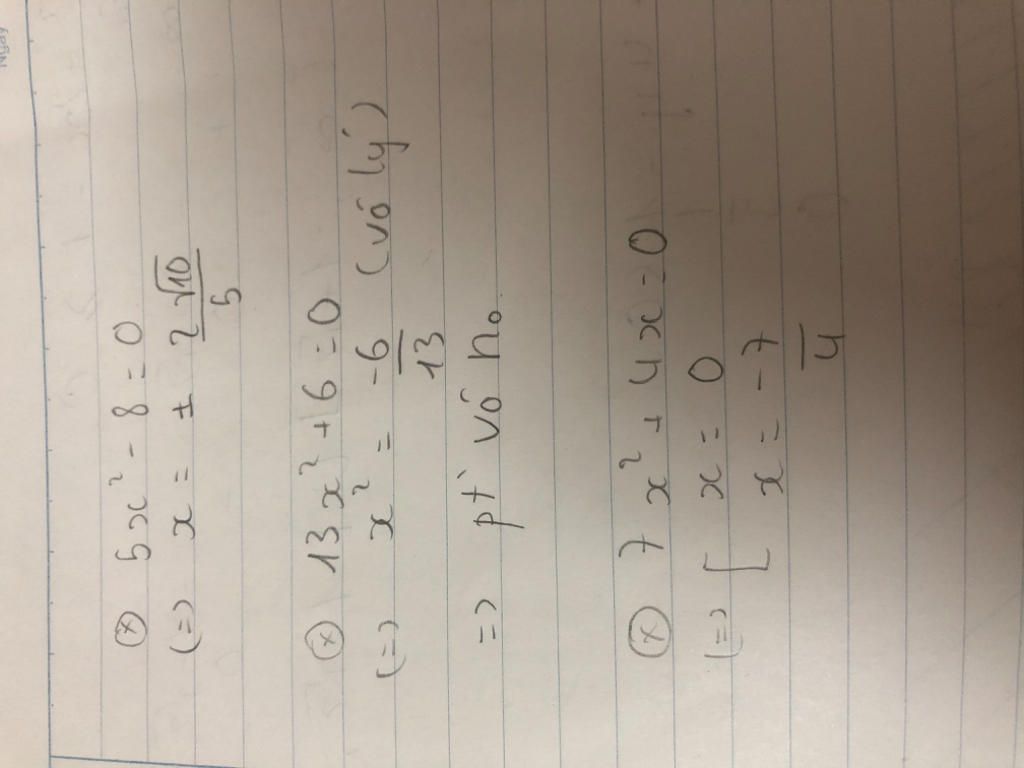 Ngày
(x) 5x² - 8 = 0
(=) x = ± 2√10/5
(x) 13x² + 6 = 0
(=) x² = -6/13 (vô lý)
=> pt vô n₀
(x) 7x² + 4x = 0
(=) [ x = 0
x = -7/4